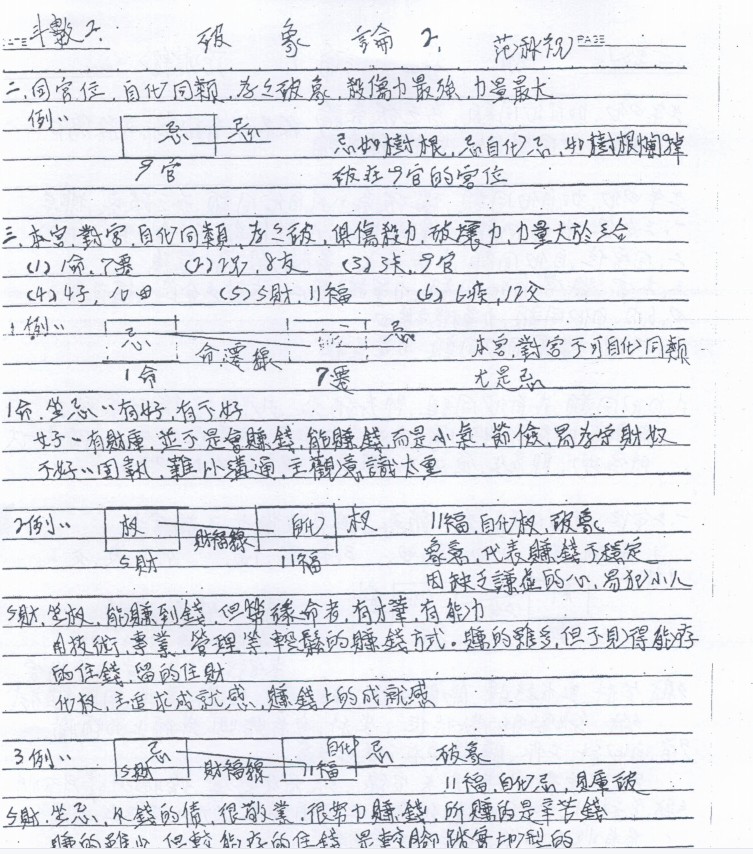 斗數2. 破 象 論 2. PAGE
二、同宮位、自化同類、為之破象、殺傷力最強、力量最大
例:
忌 忌
9官
忌如樹根、忌自化忌、如樹根爛掉
破在9官的宮位
三、本宮、對宮、自化同類、為之破、俱傷殺力、破壞力、力量大於三合
(1) 1命、7遷 (2) 2兄、8友 (3) 3夫、9官
(4) 4子、10田 (5) 5財、11福 (6) 6疾、12父
1例:
忌 命遷線 忌
1命 7遷
本宮、對宮不可自化同類
尤是忌
1命、坐忌:有好、有不好
好-有財庫、並不是會賺錢、能賺錢、而是小氣、節儉、易為守財奴
不好:固執、難以溝通、主觀意識太重
2例:
权 財福線 自化 权
5財 11福
11福、自化权、破象
象意、代表賺錢不穩定
因缺乏謙虛的心、易犯小人
5財、坐权、能賺到錢、但勞碌命者、有才華、有能力
用技術、專業、管理等、輕鬆的賺錢方式。賺的雖多、但不見得能存
的住錢、留的住財
化权、主追求成就感、賺錢上的成就感
3例:
忌 財福線 自化 忌
5財 11福
破象
11福、自化忌、財庫破
5財、坐忌、欠錢的債、很敬業、很努力賺錢、所賺的是辛苦錢
賺的雖少、但較能存的住錢、是較腳踏實地型的